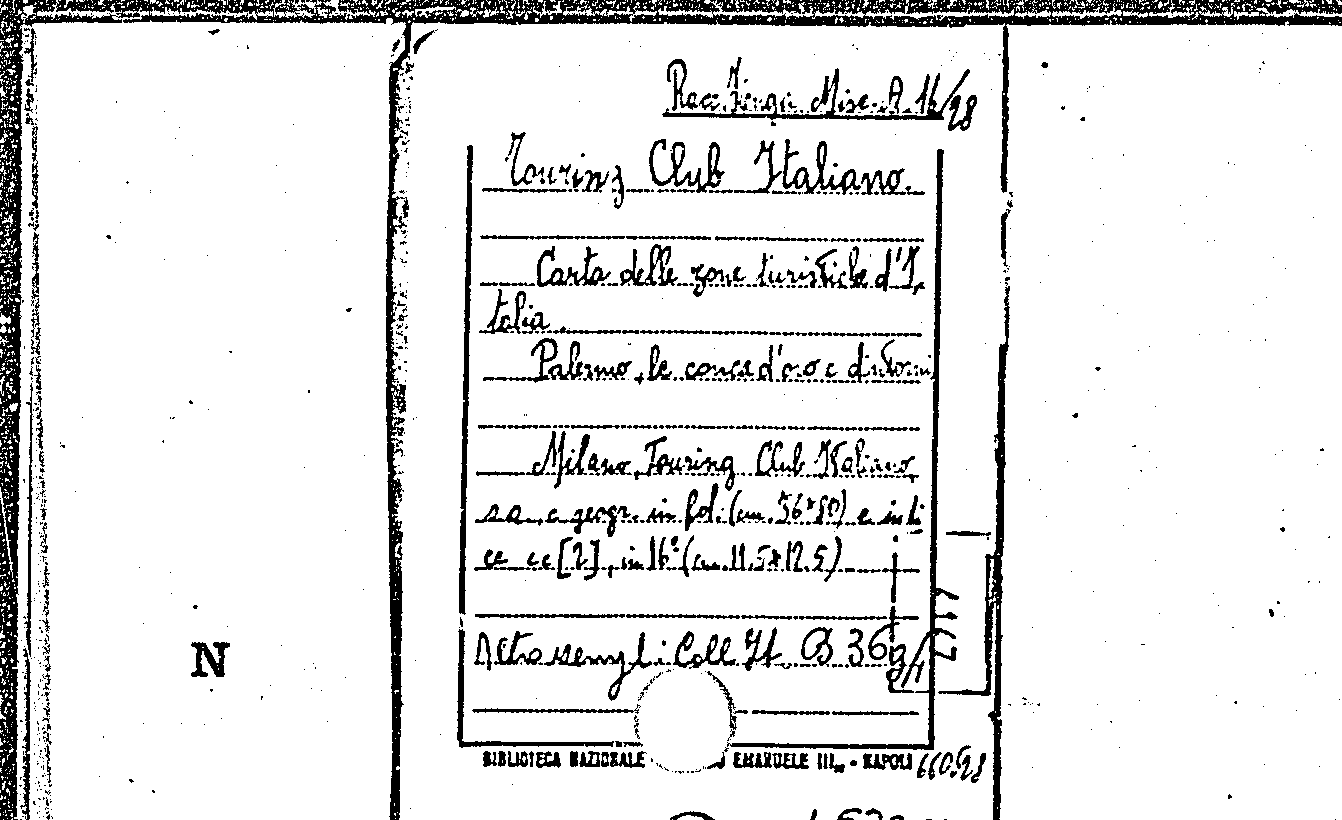 Racc. Misc. A. 16/98
Touring Club Italiano.
Carta delle zone turistiche d'I,
talia.
Palermo, le conca d'oro e dintorni
Milano, Touring Club Italiano,
s.a., c. geogr. in fol. (cm. 56*80) e indi
ce cc [2], in 16° (cm. 11.5*12.5)
Altro esempl: Coll It. B 36
N
BIBLIOTECA NAZIONALE EMANUELE III" - NAPOLI